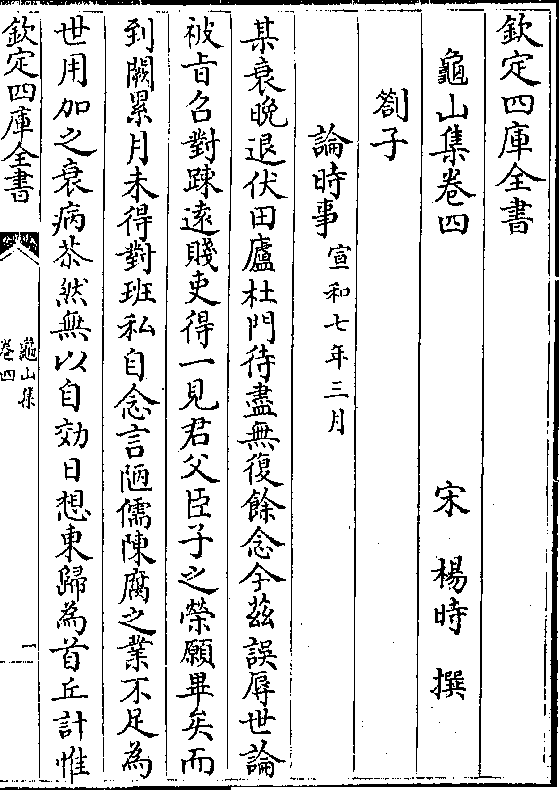 欽定四庫全書
龜山集卷四　宋　楊時　撰
劄子
論時事宣和七年三月
某衰晚退伏田廬杜門待盡無復餘念今茲誤辱世論
被㫖召對踈逺賤吏得一見君父臣子之榮願畢矣而
到闕累月未得對班私自念言陋儒陳腐之業不足為
世用加之衰病苶然無以自効日想東歸為首丘計惟
欽定四庫全書
龜山集
卷四
一